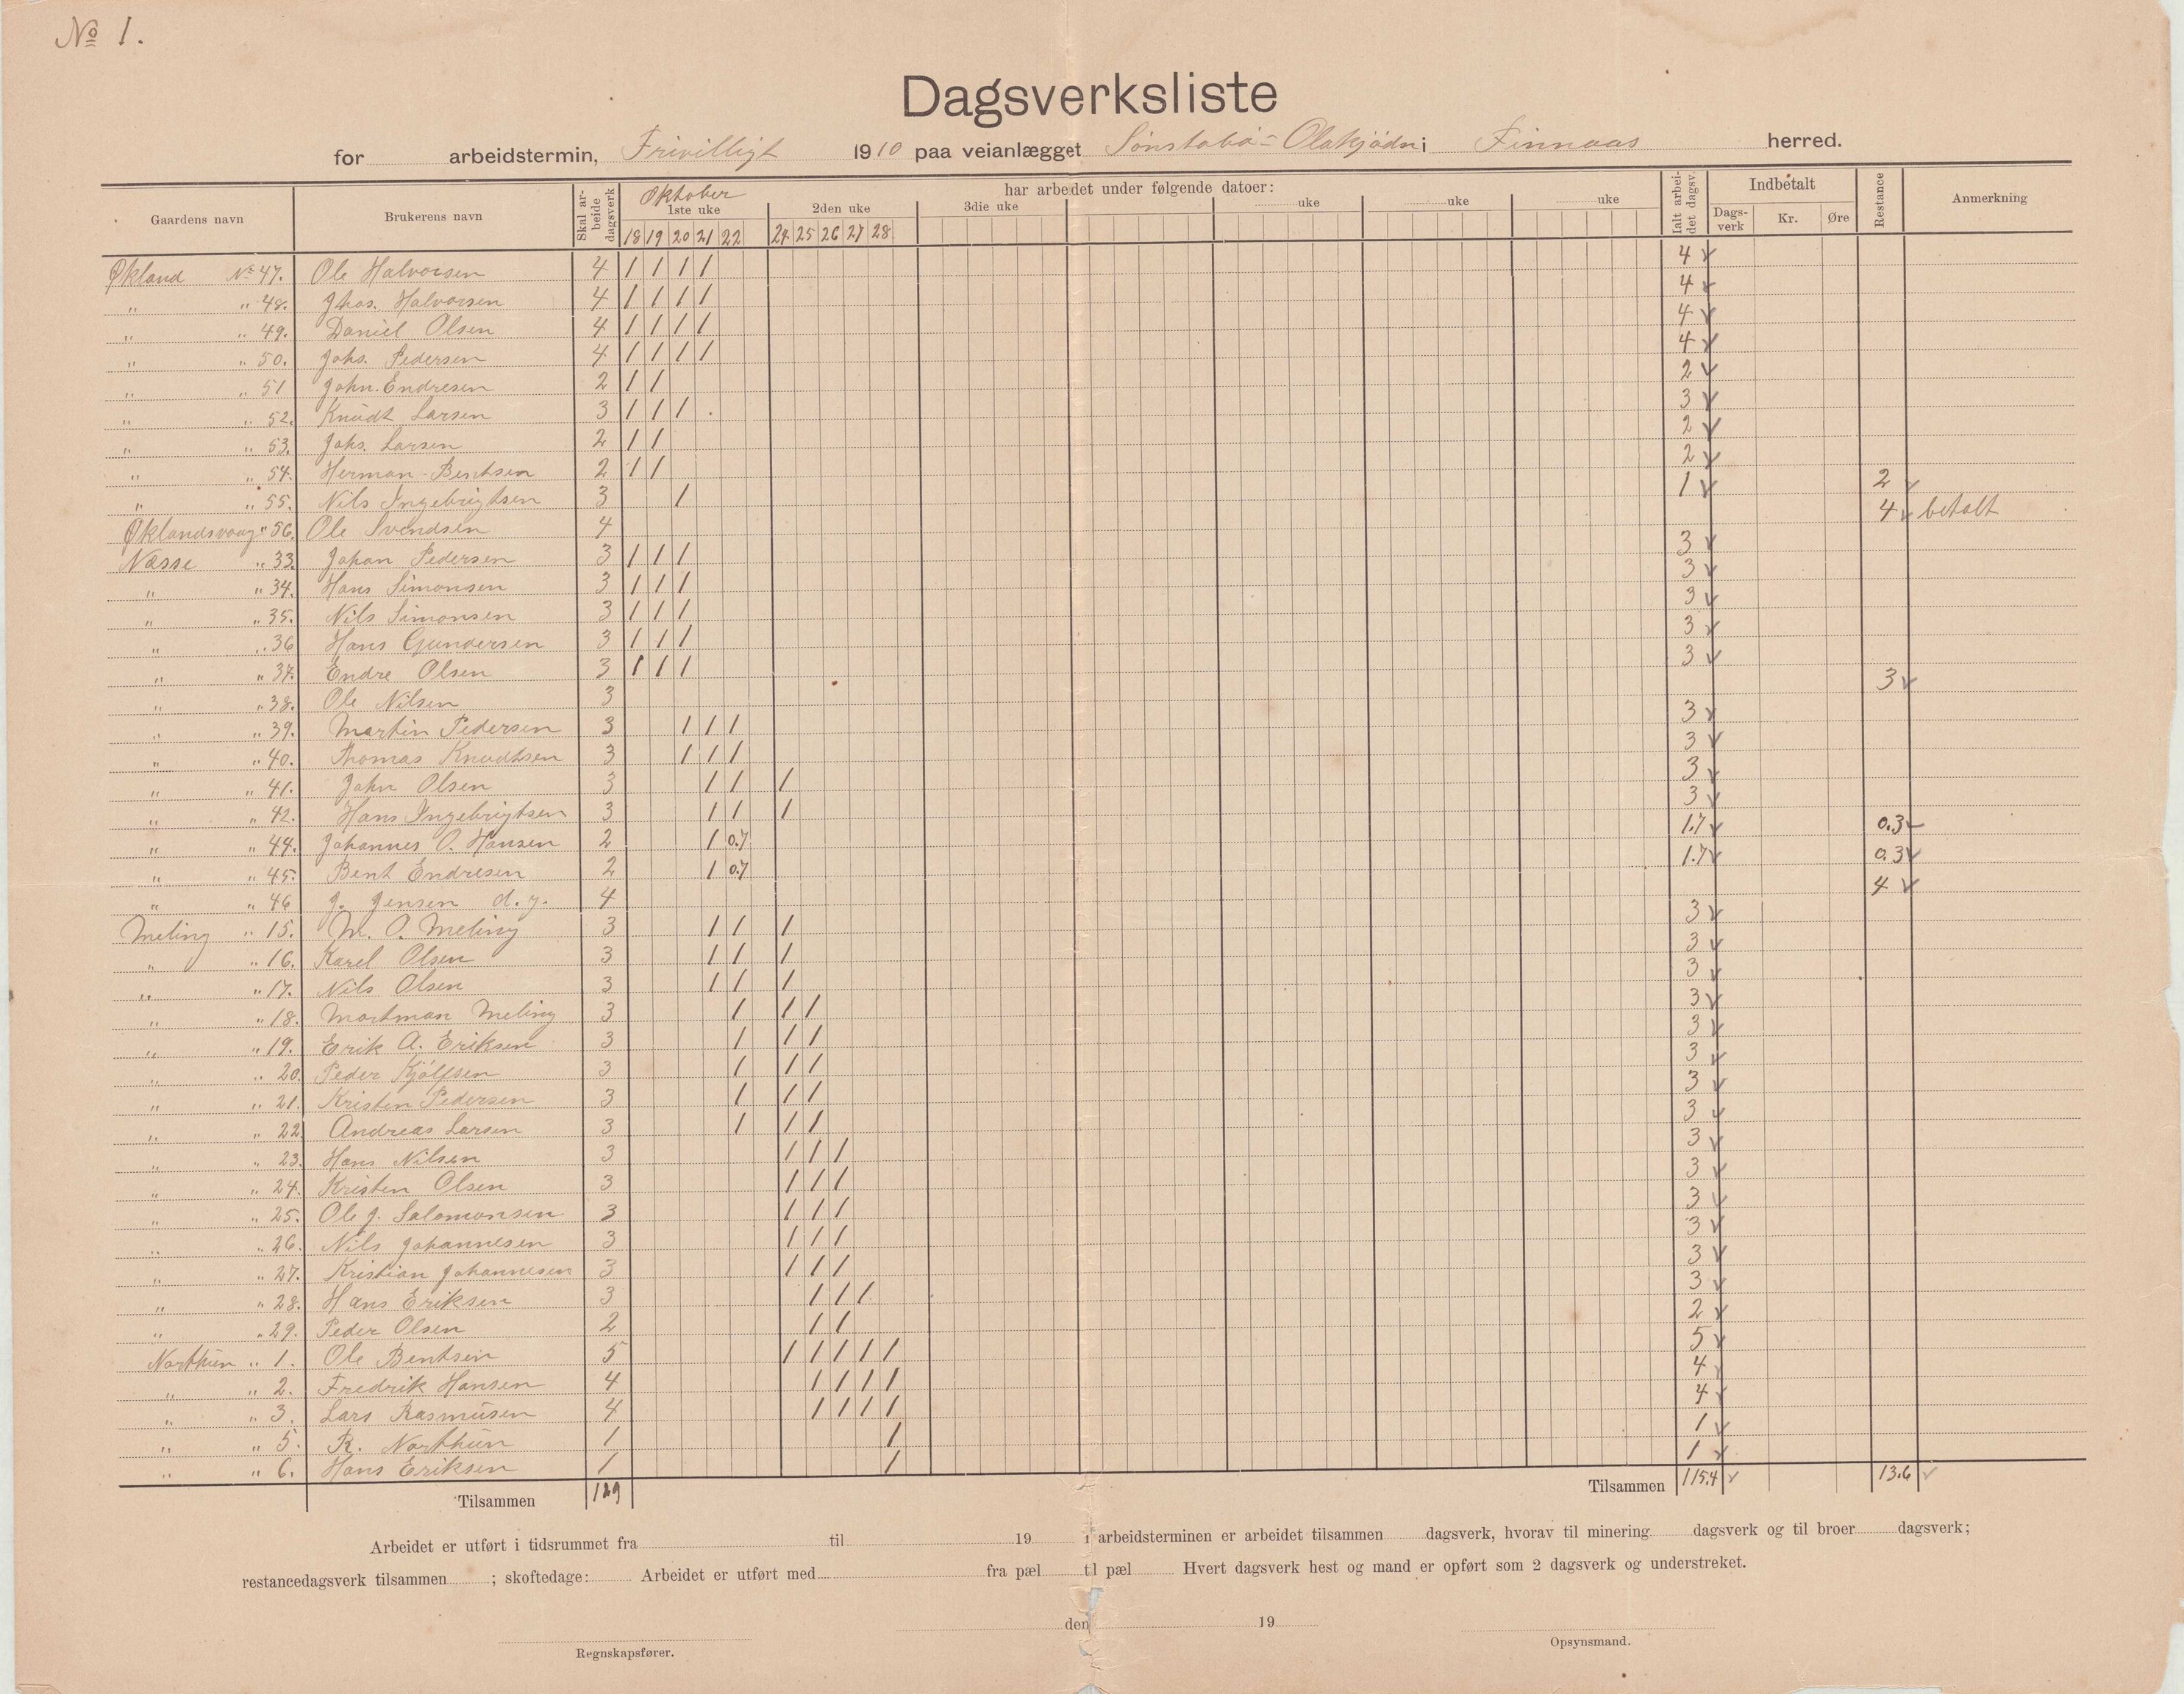 No 1.
Dagsverksliste
for arbeidstermin, Frivilligt 1910 paa veianlægget Sönstabö - Olakjödn i Finnaas herred.
Gaardens navn Brukerens navn Skal arbeide dagsverk Oktober har arbeidet under følgende datoer: Ialt arbeidet dagsv. Indbetalt Restance Anmerkning
1ste uke 2den uke 3die uke uke uke uke Dagsverk Kr. Øre
18 19 20 21 22 24 25 26 27 28
Økland No 47. Ole Halvorsen 4 1 1 1 1 4 ✓
" " 48. Johs. Halvorsen 4 1 1 1 1 4 ✓
" " 49. Daniel Olsen 4 1 1 1 1 4 ✓
" " 50. Johs. Pedersen 4 1 1 1 1 4 ✓
" " 51 John. Endresen 2 1 1 2 ✓
" " 52. Knudt Larsen 3 1 1 1 . 3 ✓
" " 53. Johs. Larsen 2 1 1 2 ✓
" " 54. Herman Bentsen 2 1 1 2 ✓
" " 55. Nils Ingebrigtsen 3 1 1 ✓ 2 ✓
Øklandsvaag " 56. Ole Svendsen 4 4 ✓ betalt
Næsse " 33. Johan Pedersen 3 1 1 1 3 ✓
" " 34. Hans Simonsen 3 1 1 1 3 ✓
" " 35. Nils Simonsen 3 1 1 1 3 ✓
" " 36 Hans Gundersen 3 1 1 1 3 ✓
" " 37. Endre Olsen 3 1 1 1 3 ✓
" " 38. Ole Nilsen 3 3 ✓
" " 39. Martin Pedersen 3 1 1 1 3 ✓
" " 40. Thomas Knudtsen 3 1 1 1 3 ✓
" " 41. John Olsen 3 1 1 1 3 ✓
" " 42. Hans Ingebrigtsen 3 1 1 1 3 ✓
" " 44. Johannes O. Hansen 2 1 0.7 1.7 ✓ 0.3 ✓
" " 45. Bent Endresen 2 1 0.7 1.7 ✓ 0.3 ✓
" " 46 J. Jensen d.y. 4 4 ✓
Meling " 15. M. O. Meling 3 1 1 1 3 ✓
" " 16. Karel Olsen 3 1 1 1 3 ✓
" " 17. Nils Olsen 3 1 1 1 3 ✓
" " 18. Mortman Meling 3 1 1 1 3 ✓
" " 19. Erik A. Eriksen 3 1 1 1 3 ✓
" " 20. Peder Kjölfsen 3 1 1 1 3 ✓
" " 21. Kristen Pedersen 3 1 1 1 3 ✓
" " 22 Andreas Larsen 3 1 1 1 3 ✓
" " 23. Hans Nilsen 3 1 1 1 3 ✓
" " 24. Kristen Olsen 3 1 1 1 3 ✓
" " 25. Ole J. Salomonsen 3 1 1 1 3 ✓
" " 26. Nils Johannesen 3 1 1 1 3 ✓
" " 27. Kristian Johannesen 3 1 1 1 3 ✓
" " 28. Hans Eriksen 3 1 1 1 3 ✓
" " 29. Peder Olsen 2 1 1 2 ✓
Northun " 1. Ole Bentsen 5 1 1 1 1 1 5 ✓
" " 2. Fredrik Hansen 4 1 1 1 1 4 ✓
" " 3. Lars Rasmusen 4 1 1 1 1 4 ✓
" " 5. R. Northun 1 1 1 ✓
" " 6. Hans Eriksen 1 1 1 ✓
Tilsammen 129 Tilsammen 115.4 ✓ 13.6 ✓
Arbeidet er utført i tidsrummet fra til 19 i arbeidsterminen er arbeidet tilsammen dagsverk, hvorav til minering dagsverk og til broer dagsverk;
restancedagsverk tilsammen ; skoftedage: Arbeidet er utført med fra pæl til pæl Hvert dagsverk hest og mand er opført som 2 dagsverk og understreket.
den 19
Regnskapsfører. Opsynsmand.